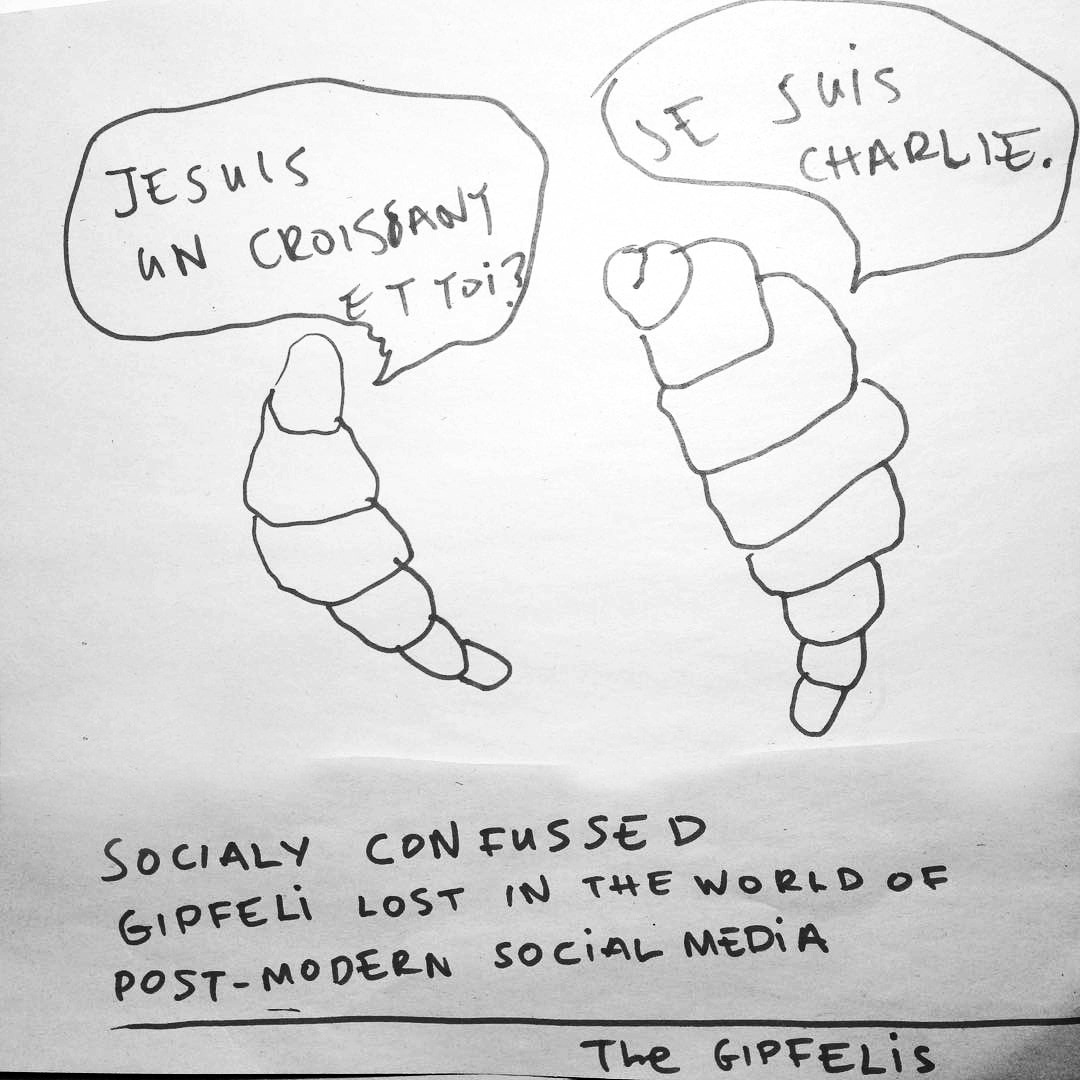 JE SUIS
UN CROISSANT
ET TOi?
JE SUiS
CHARLIE.
SOCIALY CONFUSSED
GIPFELi LOST IN THE WORLD OF
POST-MODERN SOCiAL MEDiA
The GIPFELiS